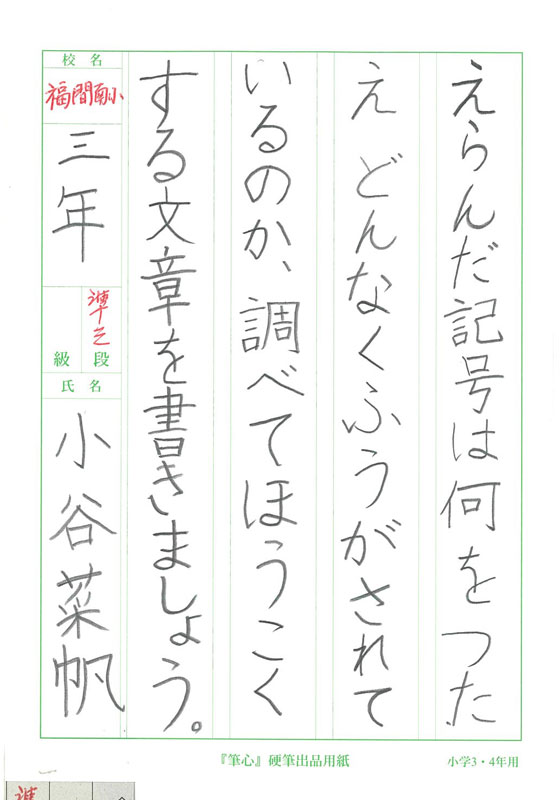 えらんだ記号は何をつた
え どんなくふうがされて
いるのか、調べてほうこく
する文章を書きましょう。
校名
福間南小
三年
準三
段
級
氏名
小谷菜帆
『筆心』硬筆出品用紙
小学3・4年用